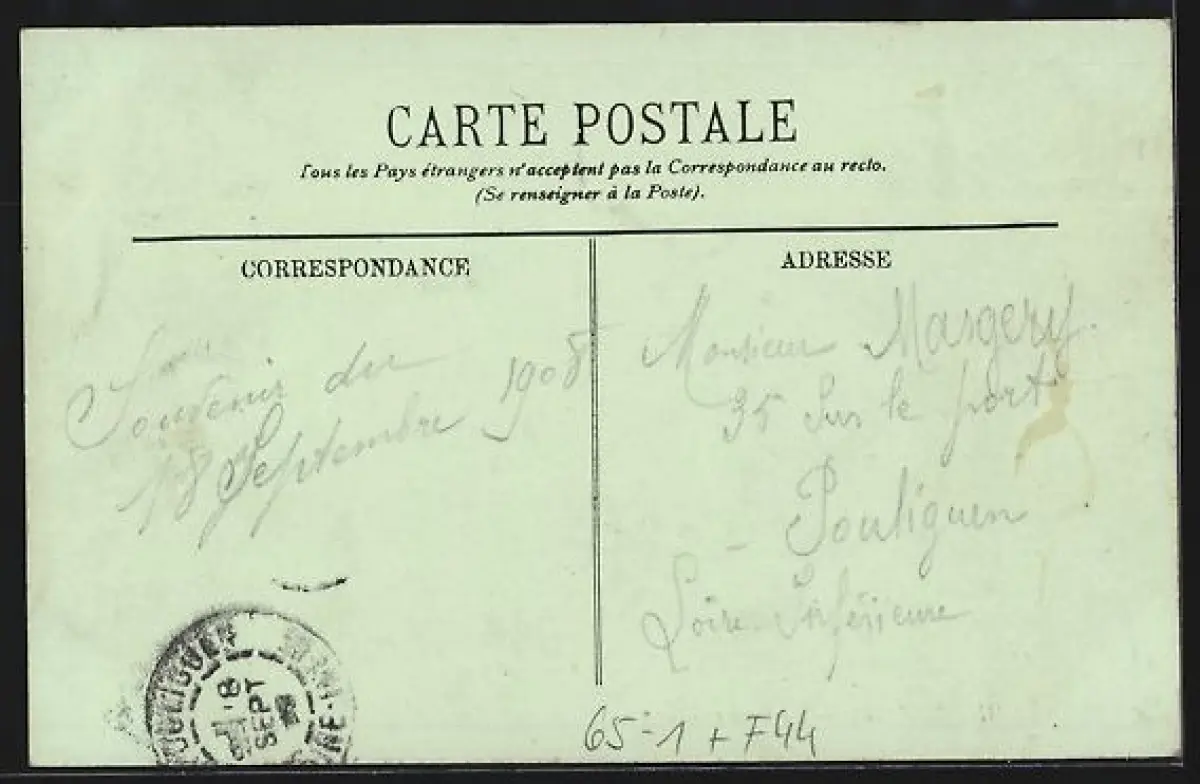 CARTE POSTALE
Tous les Pays étrangers n'acceptent pas la Correspondance au recto.
(Se renseigner à la Poste).
CORRESPONDANCE
Souvenir du
18 Septembre 1908
ADRESSE
Monsieur Margery.
35 Sur le port
- Pouliguen
Loire-Inférieure
POULIGUEN
8
SEPT
65-1 + F44